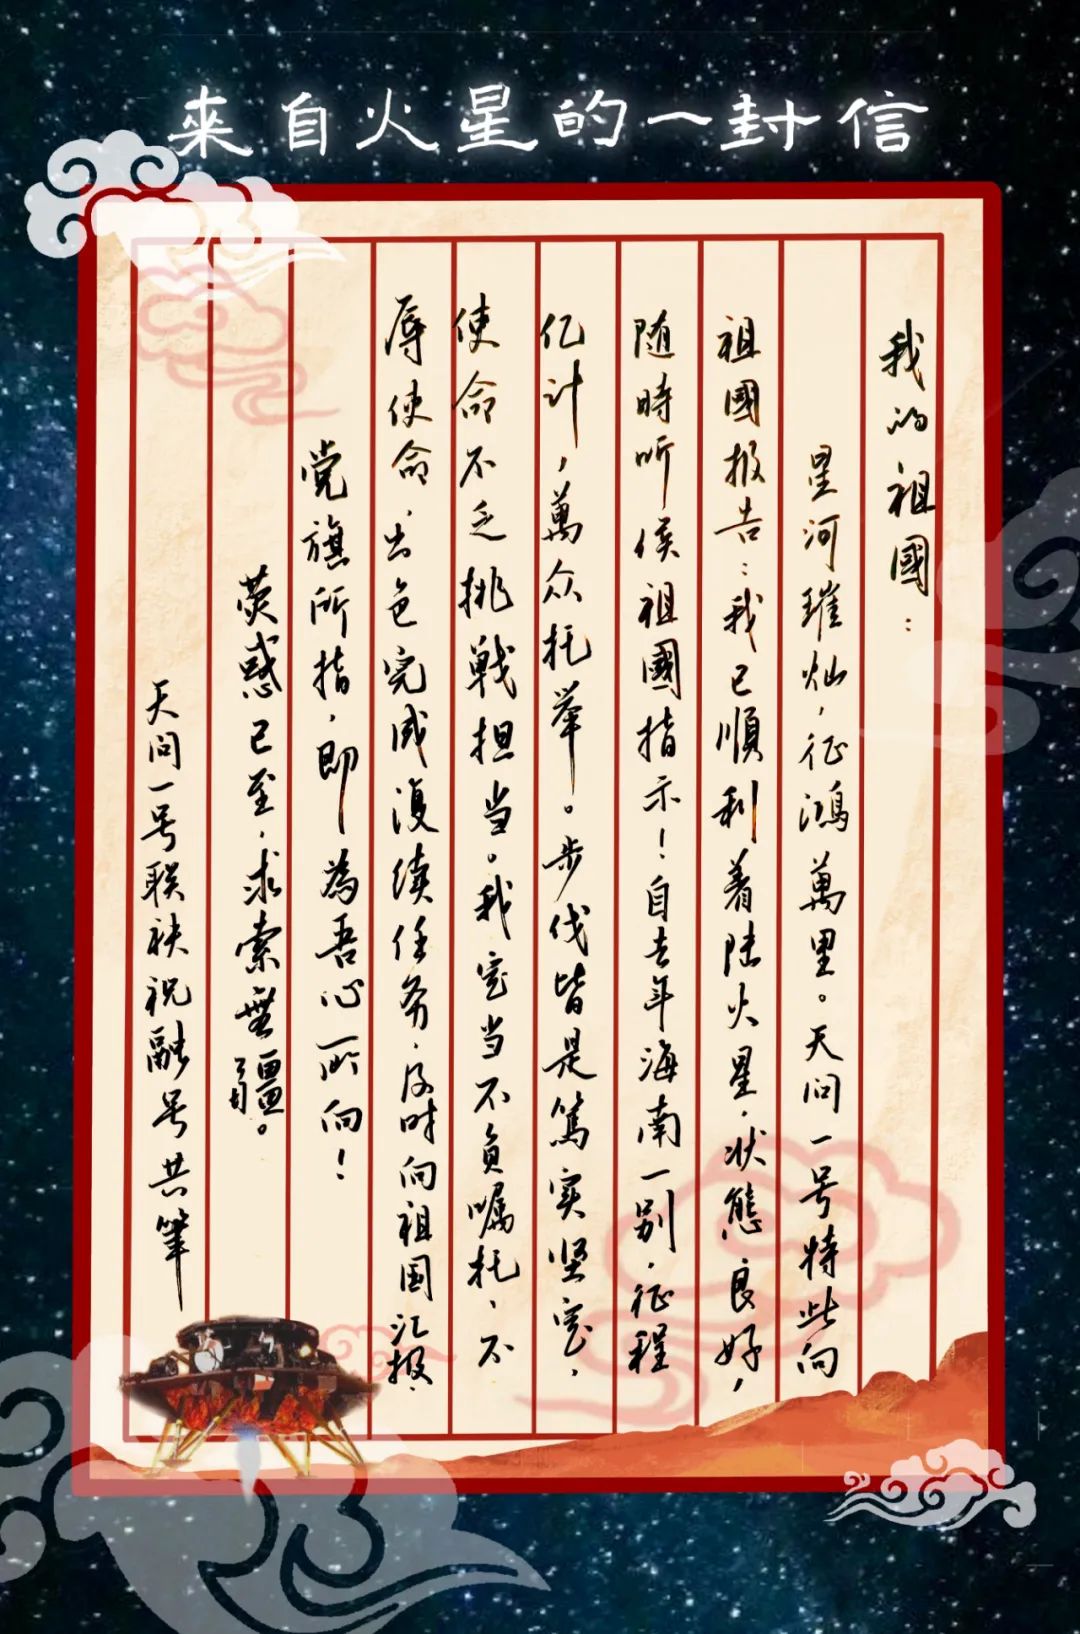 來自火星的一封信
我的祖國：
星河璀灿，征鴻萬里。天问一号特此向
祖國报告：我已順利着陆火星，状態良好，
随時听候祖國指示！自去年海南一别，征程
亿计，萬众托举。步伐皆是篤实坚定，
使命不乏挑戰担当。我定当不負嘱托、不
辱使命，出色完成後续任务，及时向祖国汇报，
党旗所指，即為吾心所向！
荧惑已至，求索無疆。
天问一号联袂祝融号共筆